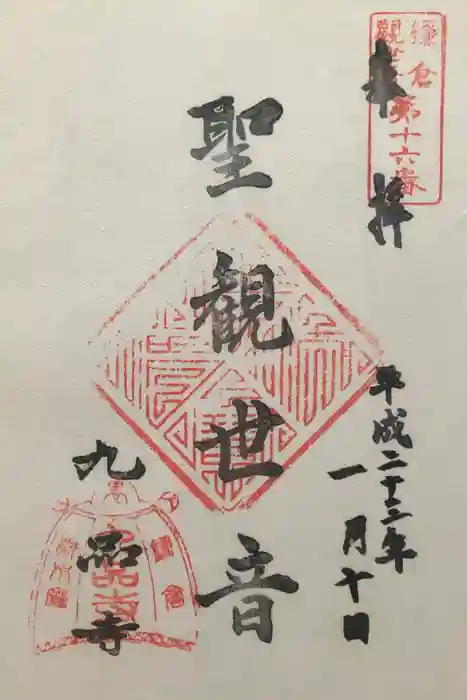 鎌倉
観世音第十六番
奉拝
平成二十二年
一月十日
聖観世音
九品寺